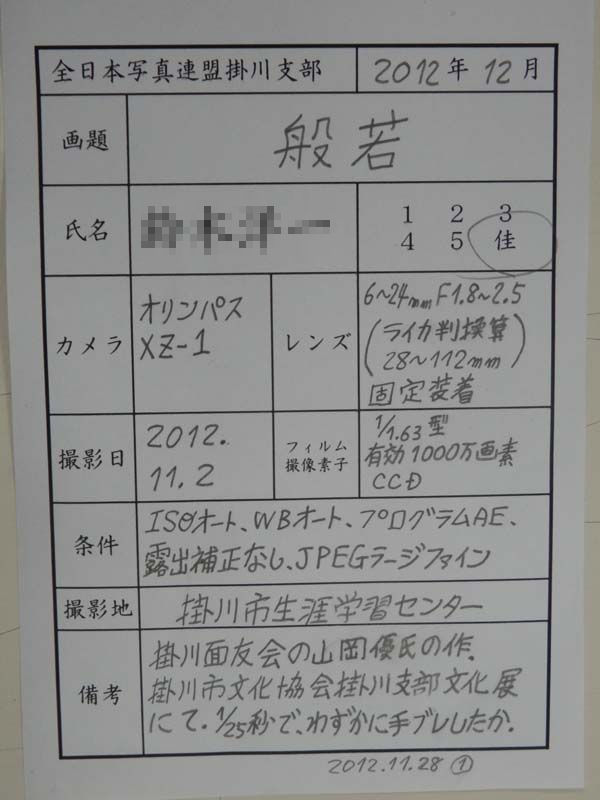 全日本写真連盟掛川支部 2012年12月
画題 般若
氏名
1 2 3
4 5 佳
カメラ
オリンパス
XZ-1
レンズ
6~24mm F1.8~2.5
(ライカ判換算
28~112mm)
固定装着
撮影日
2012.
11.2
フィルム
撮像素子
1/1.63型
有効1000万画素
CCD
条件
ISOオート、WBオート、プログラムAE、
露出補正なし、JPEGラージファイン
撮影地 掛川市生涯学習センター
備考
掛川面友会の山岡優氏の作.
掛川市文化協会掛川支部文化展
にて.1/25秒で、わずかに手ブレしたか.
2012.11.28 ①